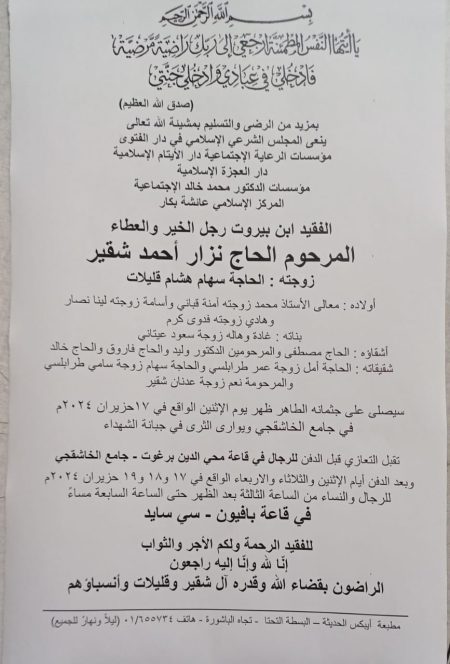 بسم الله الرحمن الرحيم
يا أيتها النفس المطمئنة ارجعي إلى ربك راضية مرضية
فادخلي في عبادي وادخلي جنتي
(صدق الله العظيم)
بمزيد من الرضى والتسليم بمشيئة الله تعالى
ينعى المجلس الشرعي الإسلامي في دار الفتوى
مؤسسات الرعاية الإجتماعية دار الأيتام الإسلامية
دار العجزة الإسلامية
مؤسسات الدكتور محمد خالد الإجتماعية
المركز الإسلامي عائشة بكار
الفقيد ابن بيروت رجل الخير والعطاء
المرحوم الحاج نزار أحمد شقير
زوجته : الحاجة سهام هشام قليلات
أولاده : معالي الأستاذ محمد زوجته آمنة قباني وأسامة زوجته لينا نصار
وهادي زوجته فدوى كرم
بناته : غادة وهاله زوجة سعود عيتاني
أشقاؤه : الحاج مصطفى والمرحومين الدكتور وليد والحاج فاروق والحاج خالد
شقيقاته : الحاجة أمل زوجة عمر طرابلسي والحاجة سهام زوجة سامي طرابلسي
والمرحومة نعم زوجة عدنان شقير
سيصلى على جثمانه الطاهر ظهر يوم الإثنين الواقع في ١٧حزيران ٢٠٢٤م
في جامع الخاشقجي ويوارى الثرى في جبانة الشهداء
تقبل التعازي قبل الدفن للرجال في قاعة محي الدين برغوت - جامع الخاشقجي
وبعد الدفن أيام الإثنين والثلاثاء والاربعاء الواقع في ١٧ و١٨ و١٩ حزيران ٢٠٢٤م
للرجال والنساء من الساعة الثالثة بعد الظهر حتى الساعة السابعة مساءً
في قاعة بافيون - سي سايد
للفقيد الرحمة ولكم الأجر والثواب
إنّا لله وإنّا إليه راجعون
الراضون بقضاء الله وقدره آل شقير وقليلات وأنسباؤهم
مطبعة أيبكس الحديثة – البسطة التحتا - تجاه الباشورة - هاتف ٠١/٦٥٥٧٣٤ (ليلاً ونهارً للجميع)